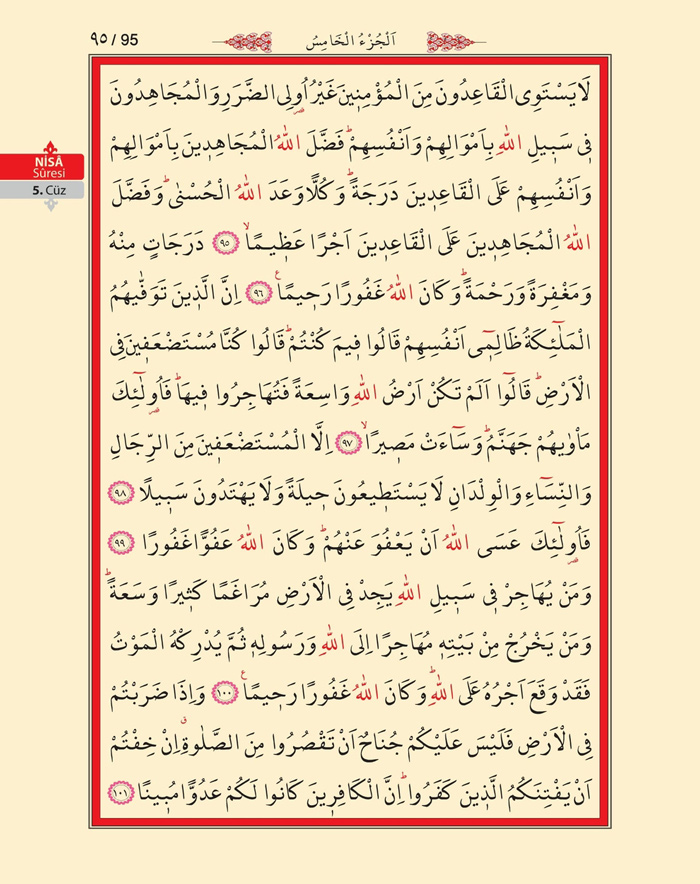 ٩٥ / 95
اَلْجُزْءُ الْخَامِسُ
NİSÂ
Sûresi
5. Cüz
لَا يَسْتَوِى الْقَاعِدُونَ مِنَ الْمُؤْمِنٖينَ غَيْرُ اُولِى الضَّرَرِ وَالْمُجَاهِدُونَ
فٖى سَبٖيلِ اللّٰهِ بِاَمْوَالِهِمْ وَاَنْفُسِهِمْؕ فَضَّلَ اللّٰهُ الْمُجَاهِدٖينَ بِاَمْوَالِهِمْ
وَاَنْفُسِهِمْ عَلَى الْقَاعِدٖينَ دَرَجَةًؕ وَكُلًّا وَعَدَ اللّٰهُ الْحُسْنٰىؕ وَفَضَّلَ
اللّٰهُ الْمُجَاهِدٖينَ عَلَى الْقَاعِدٖينَ اَجْرًا عَظٖيمًاۙ ﴿٩٥﴾ دَرَجَاتٍ مِنْهُ
وَمَغْفِرَةً وَرَحْمَةًؕ وَكَانَ اللّٰهُ غَفُورًا رَحٖيمًاع ﴿٩٦﴾ اِنَّ الَّذٖينَ تَوَفّٰيهُمُ
الْمَلٰٓئِكَةُ ظَالِمٖٓى اَنْفُسِهِمْ قَالُوا فٖيمَ كُنْتُمْؕ قَالُوا كُنَّا مُسْتَضْعَفٖينَ فِى
الْاَرْضِؕ قَالُٓوا اَلَمْ تَكُنْ اَرْضُ اللّٰهِ وَاسِعَةً فَتُهَاجِرُوا فٖيهَاؕ فَاُو۬لٰٓئِكَ
مَاْوٰيهُمْ جَهَنَّمُؕ وَسَٓاءَتْ مَصٖيرًاۙ ﴿٩٧﴾ اِلَّا الْمُسْتَضْعَفٖينَ مِنَ الرِّجَالِ
وَالنِّسَٓاءِ وَالْوِلْدَانِ لَا يَسْتَطٖيعُونَ حٖيلَةً وَلَا يَهْتَدُونَ سَبٖيلًا ﴿٩٨﴾
فَاُو۬لٰٓئِكَ عَسَى اللّٰهُ اَنْ يَعْفُوَ عَنْهُمْؕ وَكَانَ اللّٰهُ عَفُوًّا غَفُورًا ﴿٩٩﴾
وَمَنْ يُهَاجِرْ فٖى سَبٖيلِ اللّٰهِ يَجِدْ فِى الْاَرْضِ مُرَاغَمًا كَثٖيرًا وَسَعَةًؕ
وَمَنْ يَخْرُجْ مِنْ بَيْتِهٖ مُهَاجِرًا اِلَى اللّٰهِ وَرَسُولِهٖ ثُمَّ يُدْرِكْهُ الْمَوْتُ
فَقَدْ وَقَعَ اَجْرُهُ عَلَى اللّٰهِؕ وَكَانَ اللّٰهُ غَفُورًا رَحٖيمًاع ﴿١٠٠﴾ وَاِذَا ضَرَبْتُمْ
فِى الْاَرْضِ فَلَيْسَ عَلَيْكُمْ جُنَاحٌ اَنْ تَقْصُرُوا مِنَ الصَّلٰوةِۗ اِنْ خِفْتُمْ
اَنْ يَفْتِنَكُمُ الَّذٖينَ كَفَرُواؕ اِنَّ الْكَافِرٖينَ كَانُوا لَكُمْ عَدُوًّا مُبٖينًا ﴿١٠١﴾